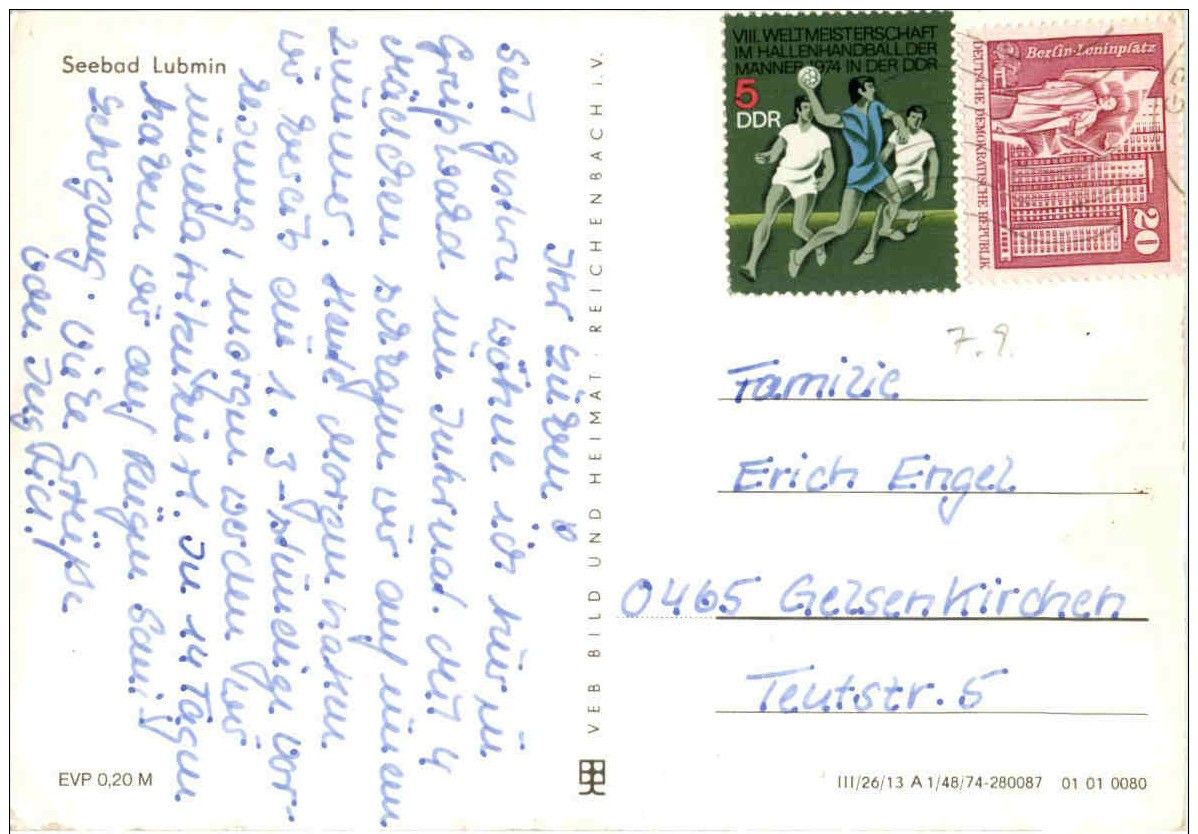 Seebad Lubmin
Ihr Lieben!
Seit gestern wohne ich hier in
Greifswald im Internat. Mit 4
Mädchen schlafen wir auf einem
Zimmer. Heute Morgen hatten
wir bereits ein 1. 3-stündige Vor-
lesung, morgen werden wir
immatrikuliert. In 14 Tagen
fahren wir auf Rügen
Lehrgang. Viele Grüße
von
VEB BILD UND HEIMAT REICHENBACH i. V.
EVP 0,20 M
VIII. WELTMEISTERSCHAFT
IM HALLENHANDBALL DER
MÄNNER 1974 IN DER DDR
5
DDR
Berlin-Leninplatz
DEUTSCHE DEMOKRATISCHE REPUBLIK
20
7.9.
Familie
Erich Engel
0465 Gelsenkirchen
Teutstr. 5
III/26/13 A 1/48/74-280087 01 01 0080